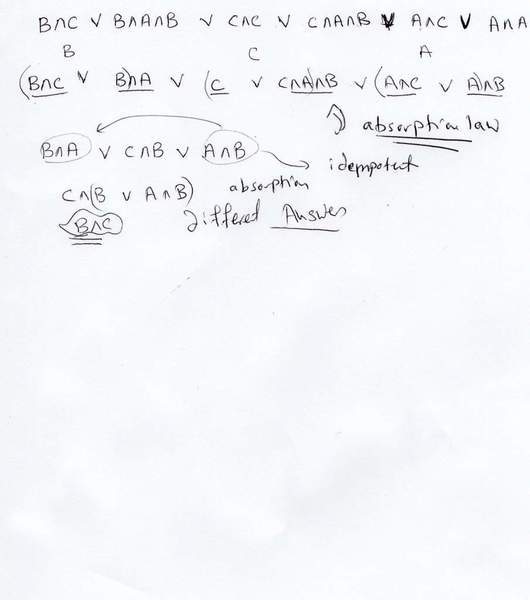 B∧C ∨ B∧A∧B ∨ C∧C ∨ C∧A∧B ∨ A∧C ∨ A∧A
B C A
(B∧C ∨ B)∧A ∨ (C ∨ C∧A)∧B ∨ (A∧C ∨ A)∧B
absorption law
B∧A ∨ C∧B ∨ A∧B
idempotent
C∧(B ∨ A∧B) absorption
B∧C different Answer